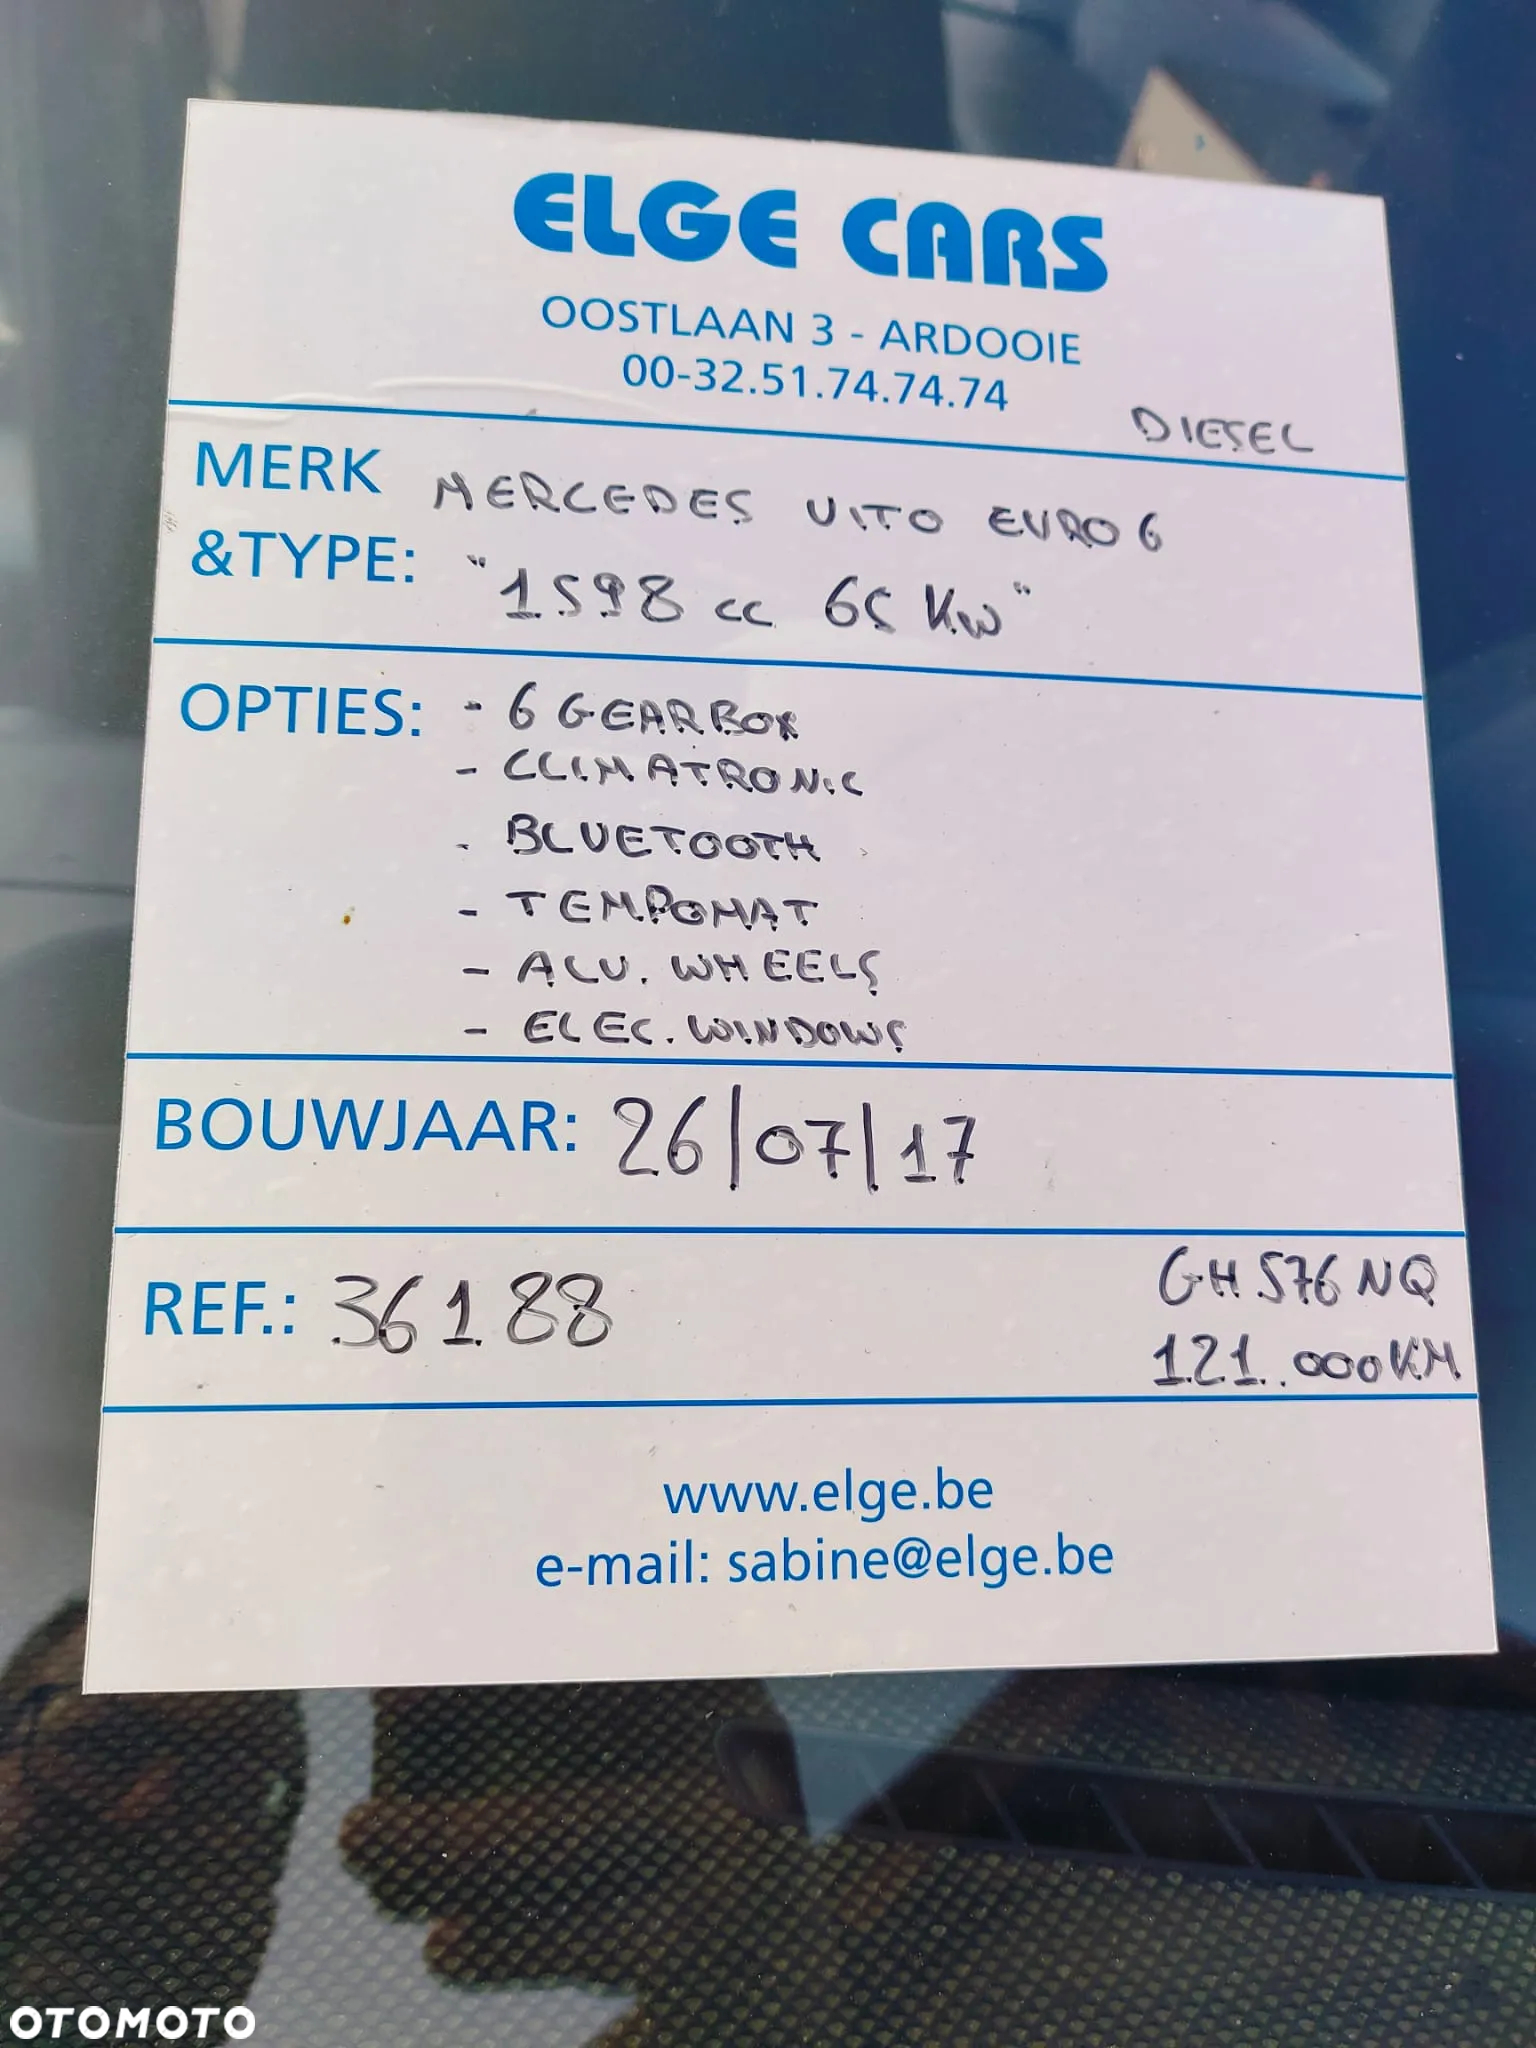 ELGE CARS
OOSTLAAN 3 - ARDOOIE
00-32.51.74.74.74
DIESEL
MERK &TYPE: MERCEDES VITO EURO 6
"1598 cc 65 KW"
OPTIES: - 6 GEARBOX
- CLIMATRONIC
- BLUETOOTH
- TEMPOMAT
- ALU. WHEELS
- ELEC. WINDOWS
BOUWJAAR: 26/07/17
REF.: 36188
GH576NQ
121.000KM
www.elge.be
e-mail: sabine@elge.be
OTOMOTO